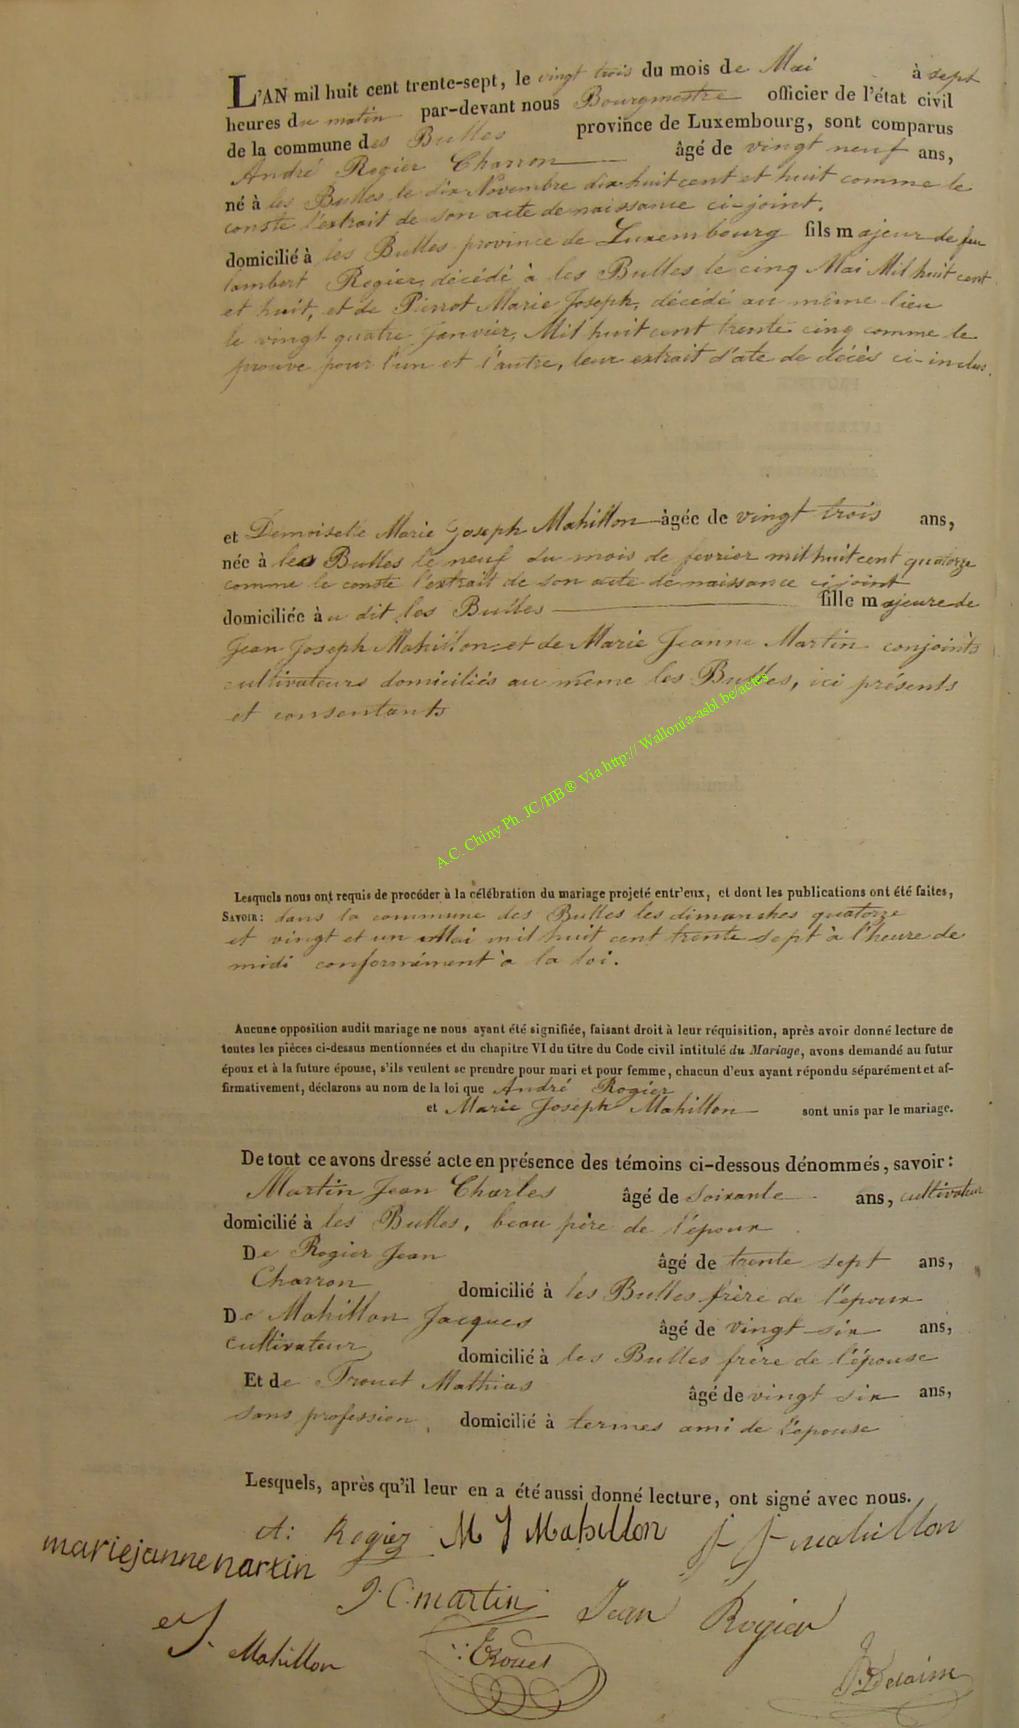 L'AN mil huit cent trente-sept, le vingt trois du mois de Mai à sept
heures du matin par-devant nous Bourgmestre officier de l'état civil
de la commune des Bulles province de Luxembourg, sont comparus
André Rogier Charron âgé de vingt neuf ans,
né à les Bulles le dix Novembre dix huit cent et huit comme le
conste l'extrait de son acte de naissance ci-joint.
domicilié à les Bulles province de Luxembourg fils majeur de feu
lambert Rogier, décédé à les Bulles le cinq Mai Mil huit cent
et huit, et de Pierrot Marie Joseph, décédé au même lieu
le vingt quatre Janvier, Mil huit cent trente cinq comme le
prouve pour l'un et l'autre, leur extrait d'ate de décès ci-inclus.
et Demoiselle Marie Joseph Mahillon âgée de vingt trois ans,
née à les Bulles le neuf du mois de fevrier mil huit cent quatorze
comme le conste l'extrait de son acte de naissance ci joint
domiciliée à u dit les Bulles fille majeure de
Jean Joseph Mahillon et de Marie Jeanne Martin conjoints
cultivateurs domiciliés au même les Bulles, ici présents
et consentants
A.C. Chiny Ph. JC/HB ® Via http:// Wallonia-asbl.be/actes
Lesquels nous ont requis de procéder à la célébration du mariage projeté entr'eux, et dont les publications ont été faites,
SAVOIR: dans la commune des Bulles les dimanches quatorze
et vingt et un Mai mil huit cent trente sept à l'heure de
midi conformément à la loi.
Aucune opposition audit mariage ne nous ayant été signifiée, faisant droit à leur réquisition, après avoir donné lecture de
toutes les pièces ci-dessus mentionnées et du chapitre VI du titre du Code civil intitulé du Mariage, avons demandé au futur
époux et à la future épouse, s'ils veulent se prendre pour mari et pour femme, chacun d'eux ayant répondu séparément et af-
firmativement, déclarons au nom de la loi que André Rogier
et Marie Joseph Mahillon sont unis par le mariage.
De tout ce avons dressé acte en présence des témoins ci-dessous dénommés, savoir:
Martin Jean Charles âgé de soixante ans, cultivateur
domicilié à les Bulles, beau père de l'époux
De Rogier Jean âgé de trente sept ans,
Charron domicilié à les Bulles frère de l'epoux
De Mahillon Jacques âgé de vingt six ans,
cultivateur domicilié à les Bulles frère de l'épouse
Et de Trouet Mathias âgé de vingt six ans,
sans profession, domicilié à termes ami de l'epouse
Lesquels, après qu'il leur en a été aussi donné lecture, ont signé avec nous.
A: Rogier M J Mahillon J J mahillon
mariejannemartin
J. C. martin Jean Rogier
J. Mahillon Trouet